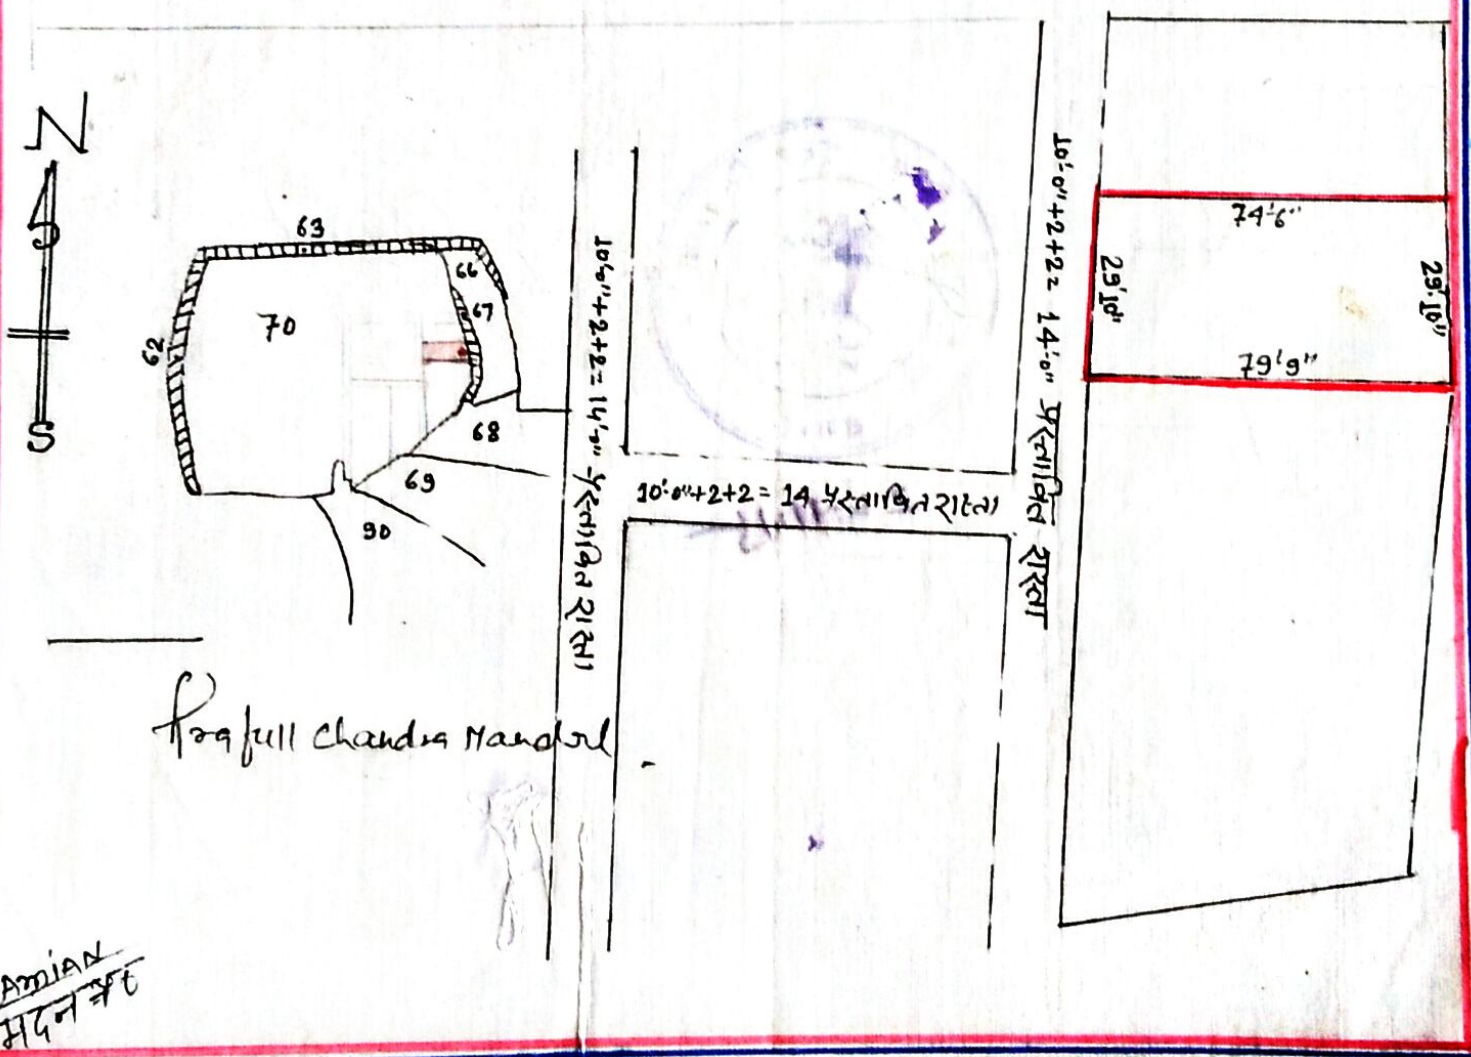 N
S
63
62
70
66
67
68
69
90
10'-0"+2+2= 14'-0" प्रस्तावित रास्ता
10'-0"+2+2 = 14 प्रस्तावित रास्ता
10'-0"+2+2= 14'-0" प्रस्तावित रास्ता
74'-6"
29'.10"
29'.10"
79'9"
Prafull Chandra Mandal
AMIAN
मदन